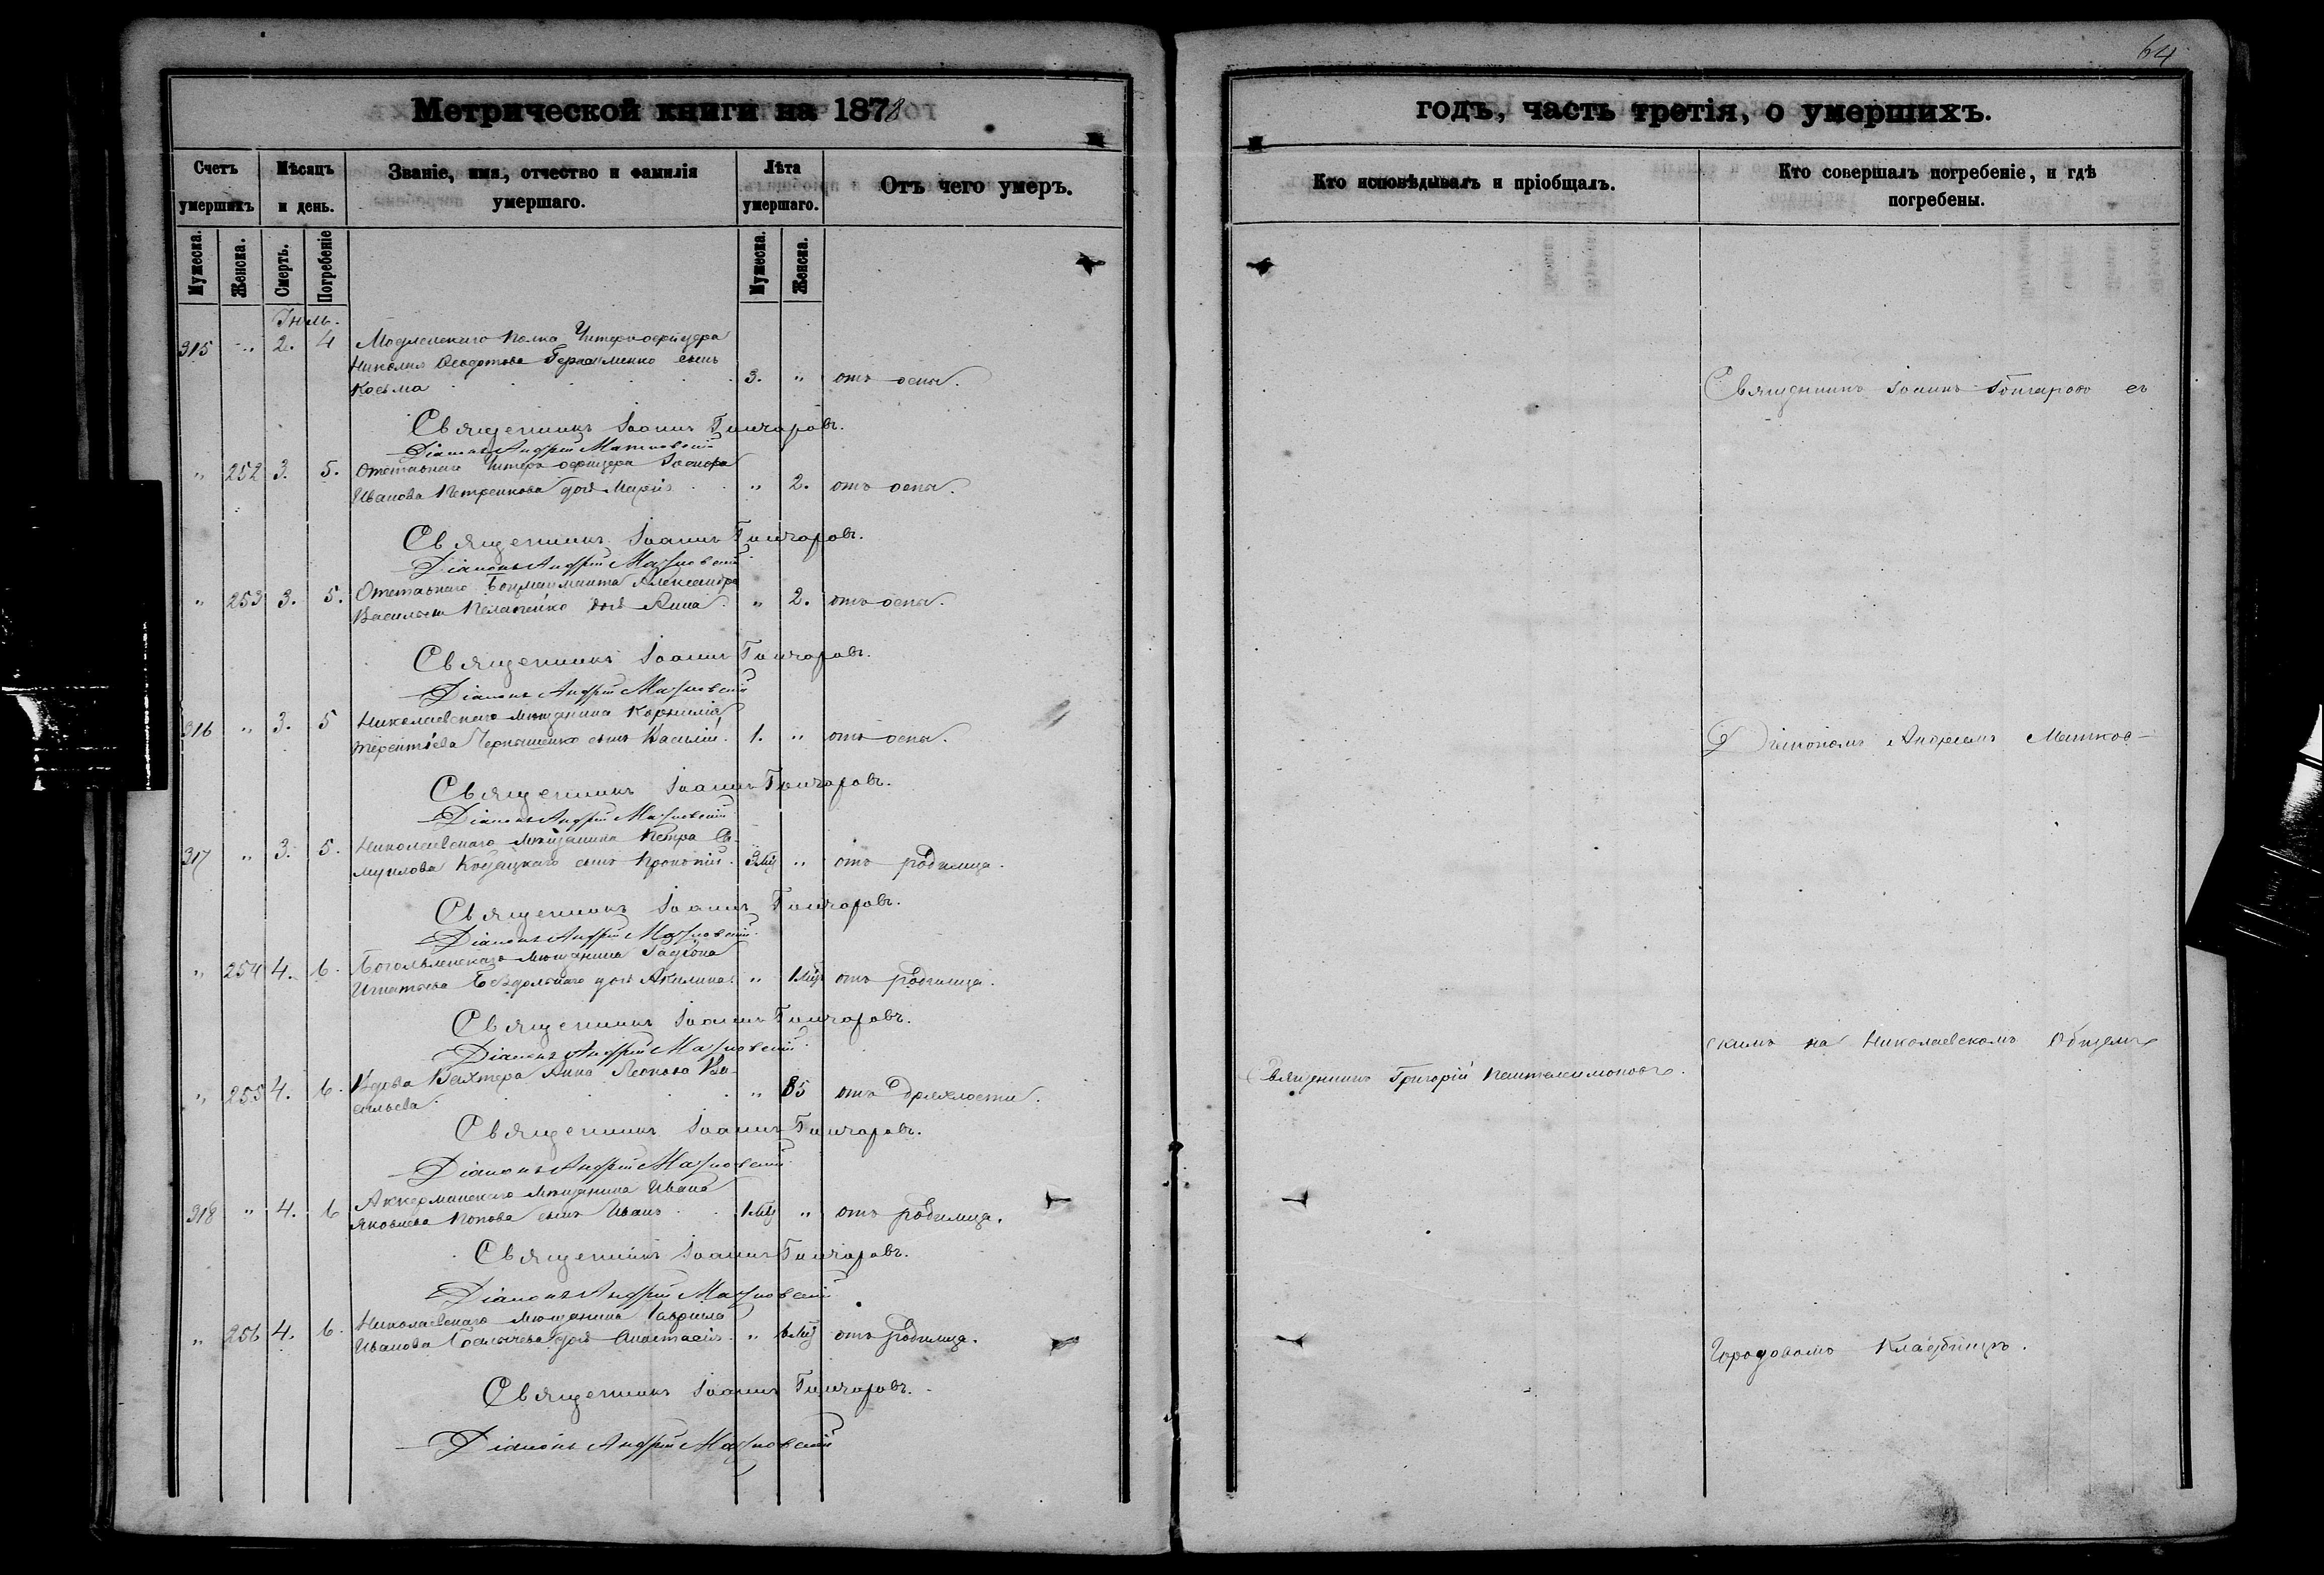 64
Метрической книги на 1878
годъ, часть третія, о умершихъ.
Счетъ умершихъ
Мѣсяцъ и день.
Званіе, имя, отчество и фамилія умершаго.
Лѣта умершаго.
Отъ чего умеръ.
Кто исповѣдывалъ и пріобщалъ.
Кто совершалъ погребеніе, и гдѣ погребены.
Мужеска.
Женска.
Смерть.
Погребеніе
Мужеска.
Женска.
Іюль.
315 " 2. 4 Полка Унтеръ-офицера
сынъ
Косьма 3. " отъ оспы.
Священникъ Іоаннъ Гончаровъ съ
Священникъ Іоаннъ Гончаровъ.
Діаконъ Андрей Матковскій
" 252 3. 5. Отставнаго Унтеръ-офицера
Иванова Петренкова дочь Марія " 2. отъ оспы.
Священникъ Іоаннъ Гончаровъ.
Діаконъ Андрей Матковскій
" 253 3. 5. Отставнаго Александра
Васильева дочь Анна " 2. отъ оспы.
Священникъ Іоаннъ Гончаровъ.
Діаконъ Андрей Матковскій
316 " 3. 5 Николаевскаго мѣщанина Корнилія
Терентіева Чернышенко сынъ Василій. 1. " отъ оспы.
Діакономъ Андреемъ Матков-
Священникъ Іоаннъ Гончаровъ.
Діаконъ Андрей Матковскій
317 " 3. 5. Николаевскаго мѣщанина Петра Са-
муилова сынъ Прокопій. 3 мц " отъ родимца.
Священникъ Іоаннъ Гончаровъ.
Діаконъ Андрей Матковскій
" 254 4. 6. мѣщанина
Игнатьева дочь Акилина. " 1 мц отъ родимца.
Священникъ Іоаннъ Гончаровъ.
Діаконъ Андрей Матковскій
скимъ на Николаевскомъ Общемъ
" 255 4. 6. Вдова Вахтера Анна Ва-
сильева " 85 отъ дряхлости.
Священникъ Григорій Пантелимоновъ.
Священникъ Іоаннъ Гончаровъ.
Діаконъ Андрей Матковскій
318 " 4. 6 Аккерманскаго мѣщанина Ивана
Яковлева Попова сынъ Иванъ 1 мц " отъ родимца.
Священникъ Іоаннъ Гончаровъ.
Діаконъ Андрей Матковскій
" 256 4. 6. Николаевскаго мѣщанина Гавріила
Иванова дочь Анастасія. " 6 мц отъ родимца.
Городовомъ Кладбищѣ.
Священникъ Іоаннъ Гончаровъ.
Діаконъ Андрей Матковскій